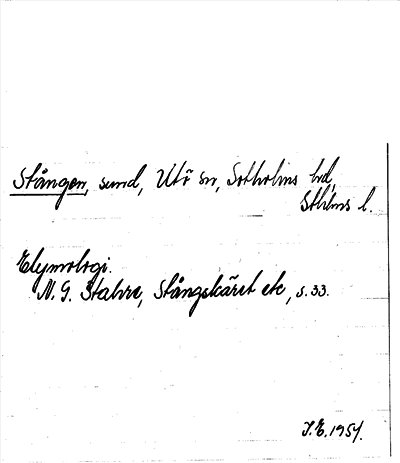 Stången, sund, Utö sn, Sotholms hd,
Sthlms l.
Etymologi.
N. G. Stahre, Stångskäret etc, s. 33.
J.E. 1957.